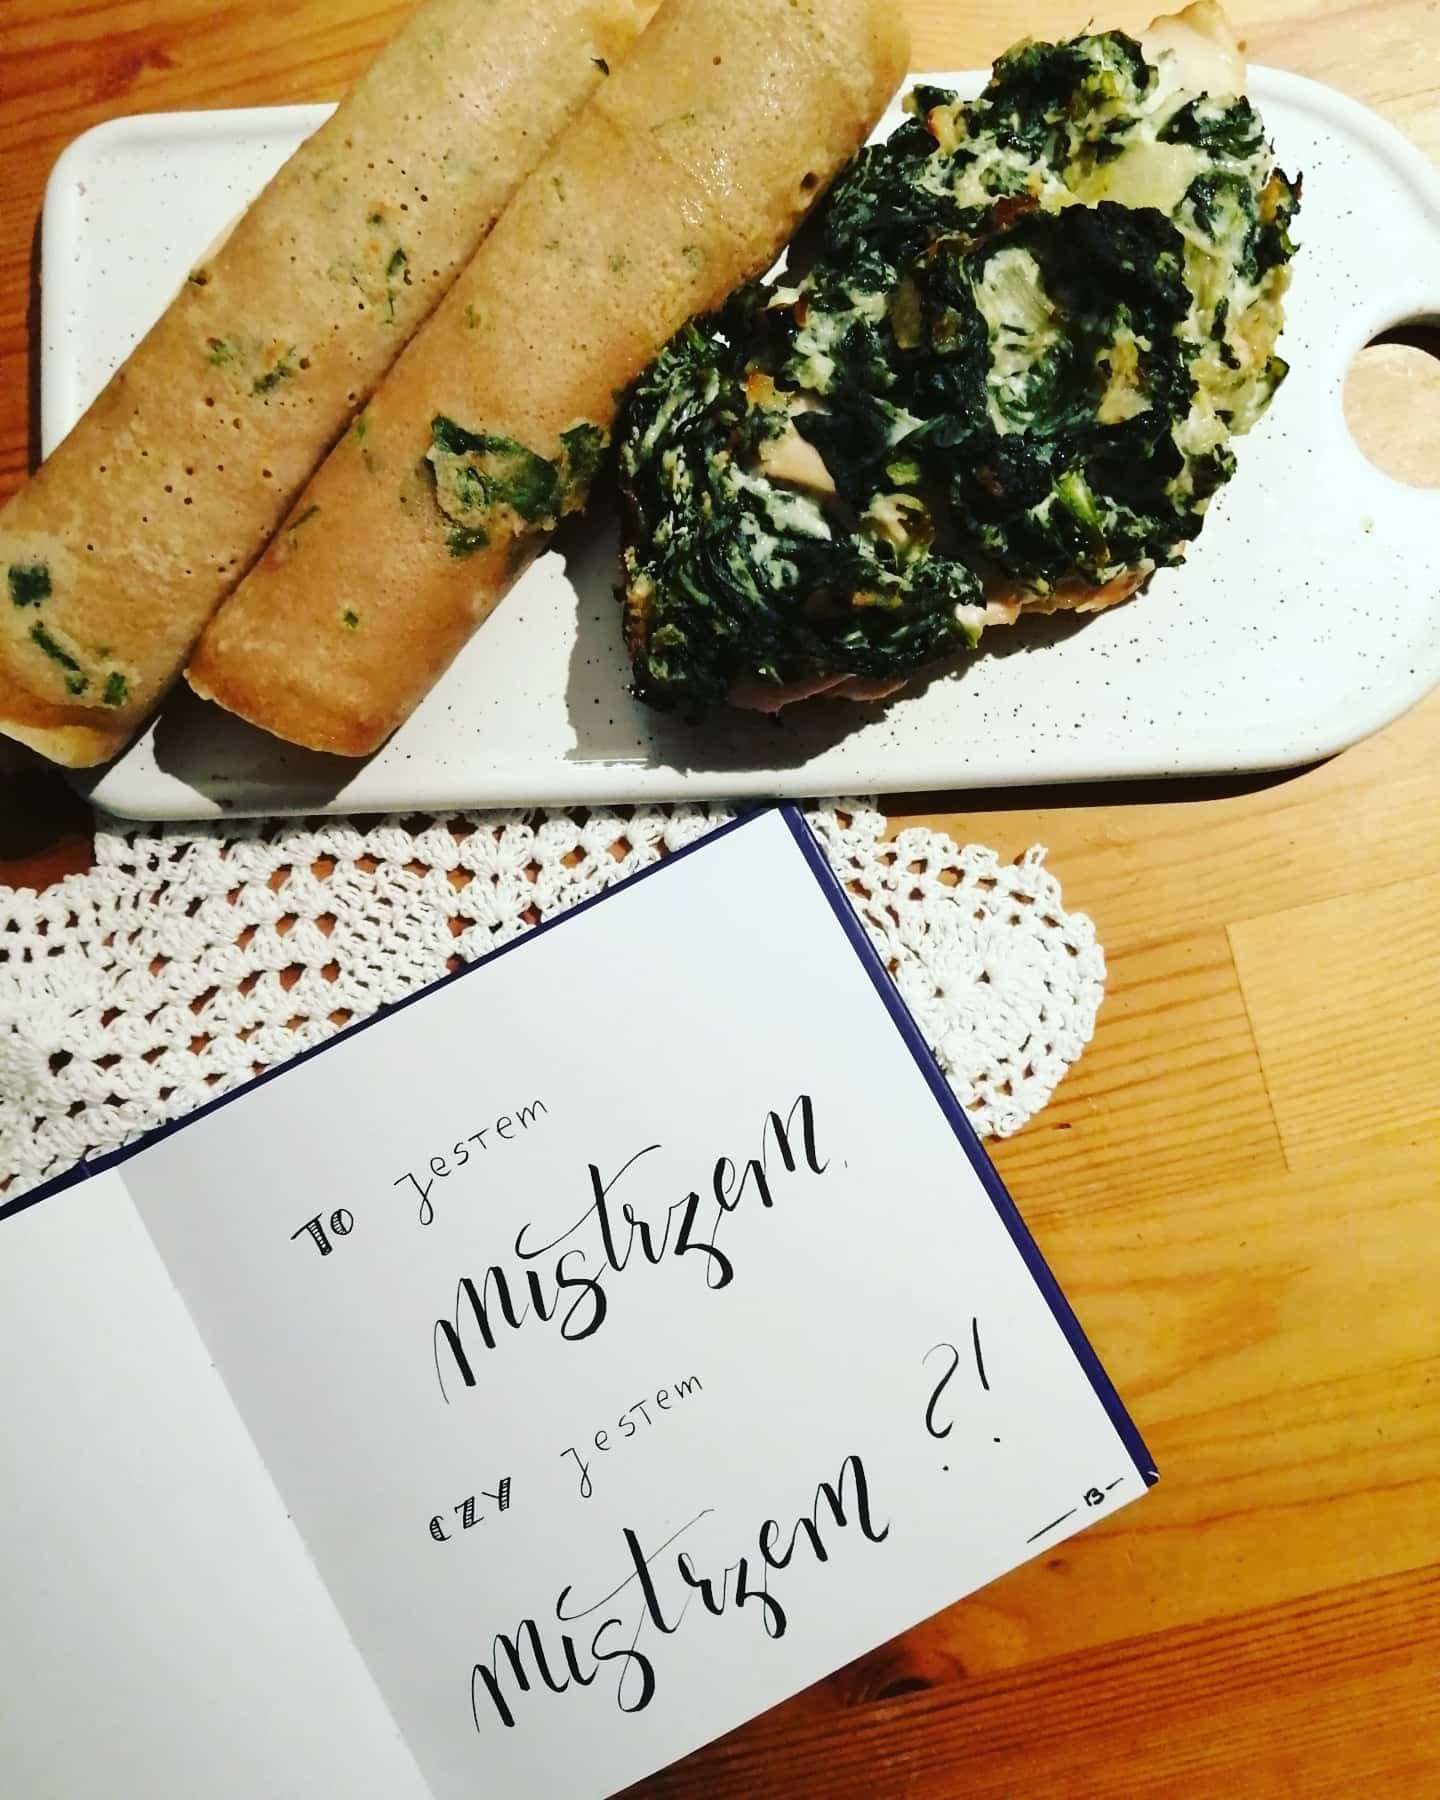 To jestem
mistrzem,
czy jestem
mistrzem?!